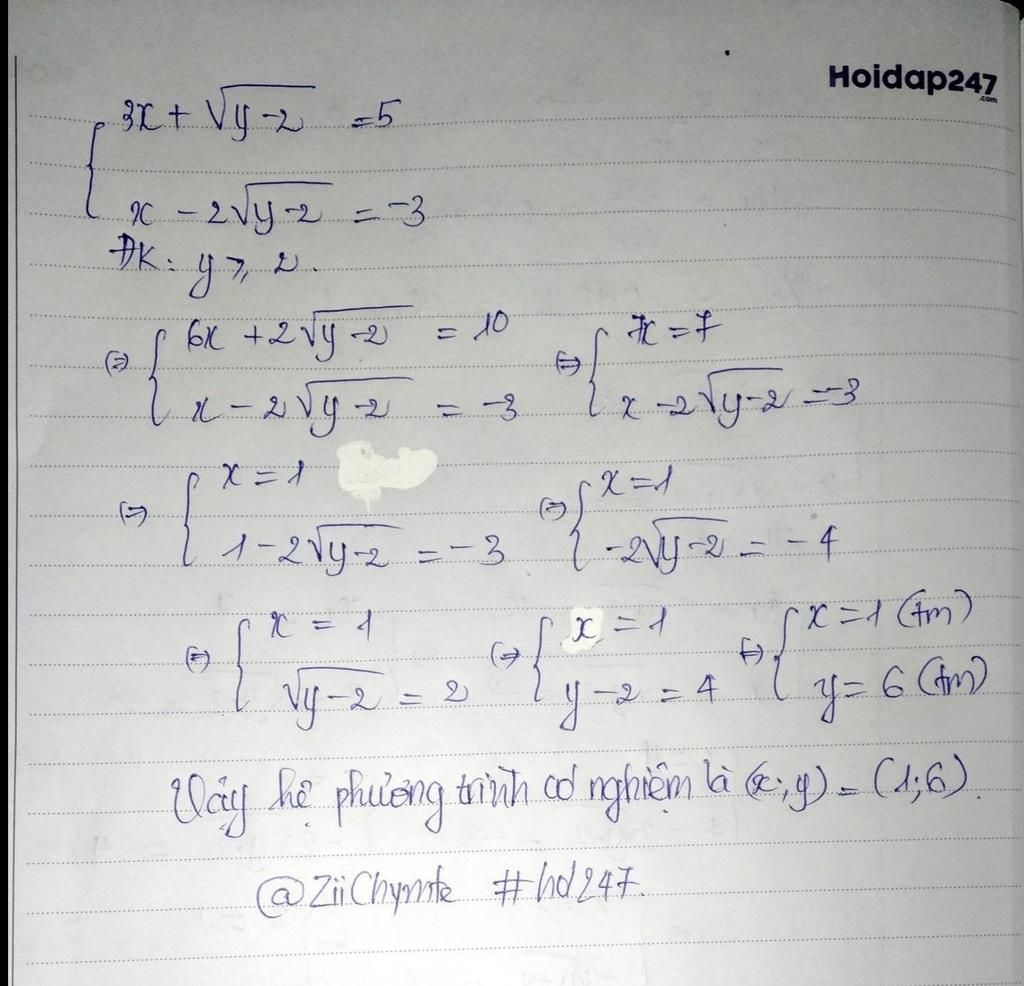 Hoidap247
.com
3x + √(y-2) = 5
x - 2√(y-2) = -3
ĐK: y ⩾ 2.
(=) { 6x + 2√(y-2) = 10 (=) { 7x = 7
x - 2√(y-2) = -3 x - 2√(y-2) = -3
(=) { x = 1 (=) { x = 1
1 - 2√(y-2) = -3 -2√(y-2) = -4
(=) { x = 1 (=) { x = 1 (=) { x = 1 (tm)
√(y-2) = 2 y - 2 = 4 y = 6 (tm)
Vậy hệ phương trình có nghiệm là (x;y) = (1;6).
@ZiiChymte #hd247.